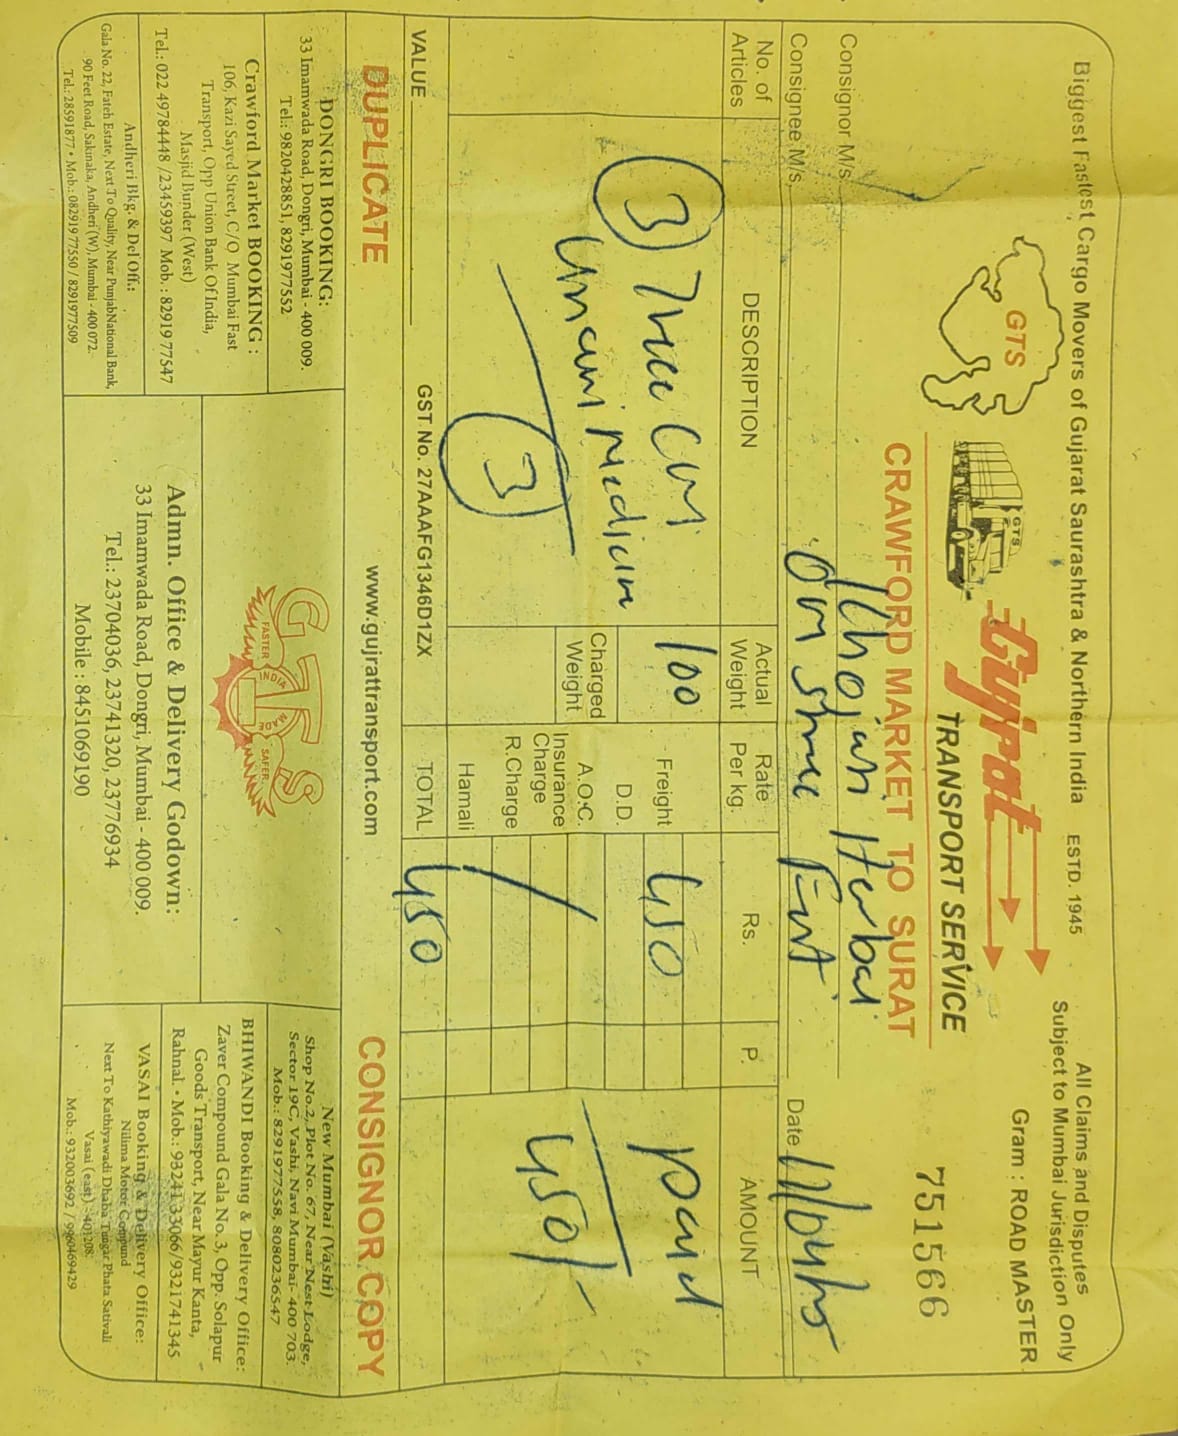 Biggest Fastest Cargo Movers of Gujarat Saurashtra & Northern India ESTD. 1945
All Claims and Disputes
Subject to Mumbai Jurisdiction Only
Gram : ROAD MASTER
GTS
GTS
Gujrat
TRANSPORT SERVICE
751566
CRAWFORD MARKET TO SURAT
Consignor M/s. Khojati Herbal
Consignee M/s. Om Shree Ent
Date
No. of Articles
DESCRIPTION
Actual Weight
Rate Per kg.
Rs.
P.
AMOUNT
3 Three
100
Freight 450
Paid
Unani Medicin
D.D.
Charged Weight
A.O.C.
Insurance Charge
450/-
R.Charge
3
Hamali
VALUE
GST No. 27AAAFG1346D1ZX
TOTAL 450
DUPLICATE
www.gujrattransport.com
CONSIGNOR COPY
DONGRI BOOKING:
33 Imamwada Road, Dongri, Mumbai - 400 009.
Tel.: 9820428851, 8291977552
Crawford Market BOOKING :
106, Kazi Sayed Street, C/O Mumbai Fast
Transport, Opp Union Bank Of India,
Masjid Bunder (West)
Tel.: 022 49784448 /23459397 Mob. : 82919 77547
Andheri Bkg. & Del Off.:
Gala No. 22, Fateh Estate, Next To Quality, Near PunjabNational Bank,
90 Feet Road, Sakinaka, Andheri (W), Mumbai - 400 072.
Tel.: 28591877 • Mob.: 082919 77550 / 8291977509
GTS
FASTER INDIA MADE SAFER
Admn. Office & Delivery Godown:
33 Imamwada Road, Dongri, Mumbai - 400 009.
Tel.: 23704036, 23741320, 23776934
Mobile : 8451069190
New Mumbai (Vashi)
Shop No.2, Plot No. 67, Near Nest Lodge,
Sector 19C, Vashi, Navi Mumbai- 400 703.
Mob.: 8291977558, 8080236547
BHIWANDI Booking & Delivery Office:
Zaver Compound Gala No. 3, Opp. Solapur
Goods Transport, Near Mayur Kanta,
Rahnal. • Mob.: 9324133066/9321741345
VASAI Booking & Delivery Office:
Nilima Motor Compund
Next To Kathiyawadi Dhaba Tungar Phata Sativali
Vasai (east) - 401208.
Mob.: 932003692 / 9960469429